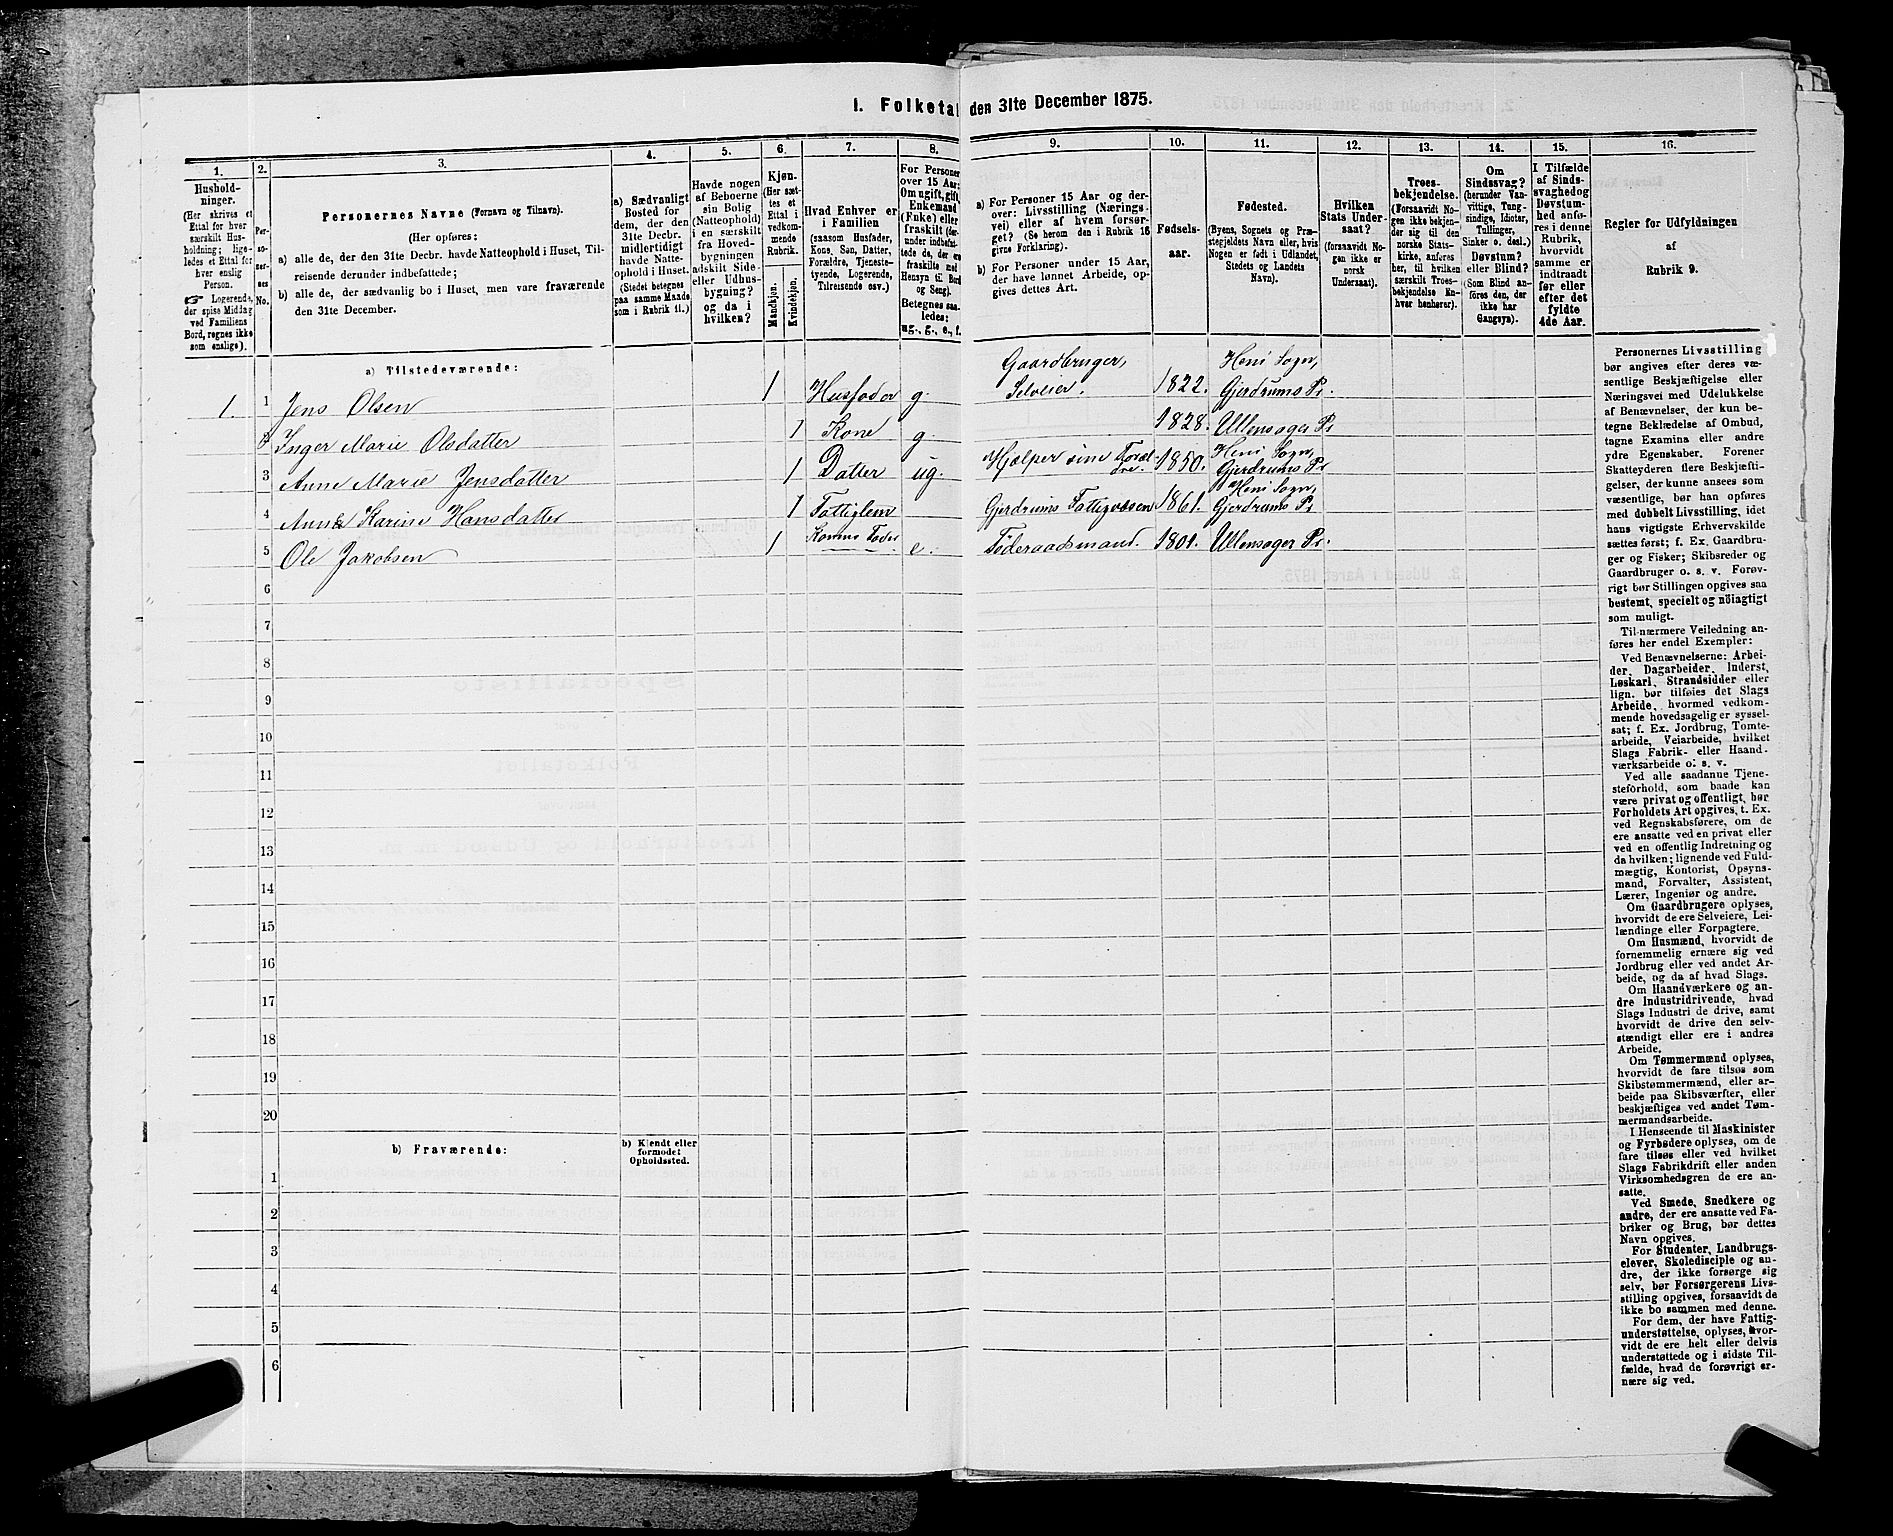 1. Folketal den 31te December 1875.
1. 2. 3. 4. 5. 6. 7. 8. 9. 10. 11. 12. 13. 14. 15. 16.
Hushold-
ninger.
(Her skrives et
Ettal for hver
særskilt Hus-
holdning; lige-
ledes et Ettal for
hver enslig
Person.
☛ Logerende,
der spise Middag
ved Familiens
Bord, regnes ikke
som enslige).
Per-
so-
ner-
nes
No.
Personernes Navne (Fornavn og Tilnavn).
(Her opføres:
a) alle de, der den 31te Decbr. havde Natteophold i Huset, Til-
reisende derunder indbefattede;
b) alle de, der sædvanlig bo i Huset, men vare fraværende
den 31te December.
a) Sædvanligt
Bosted for
dem, der den
31te Decbr.
midlertidigt
havde Natte-
ophold i Huset.
(Stedet betegnes
paa samme Maade
som i Rubrik 11.)
Havde nogen
af Beboerne
sin Bolig
(Natteophold)
i en særskilt
fra Hoved-
bygningen
adskilt Side-
eller Udhus-
bygning?
og da i
hvilken?
Kjøn.
(Her sæt-
tes et
Ettal i
vedkom-
mende
Rubrik.
Mandkjøn.
Kvindekjøn.
Hvad Enhver er
i Familien
(saasom Husfader,
Kone, Søn, Datter,
Forældre, Tjeneste-
tyende, Logerende,
Tilreisende osv.)
For Personer
over 15 Aar:
Om ugift, gift,
Enkemand
(Enke) eller
fraskilt (der-
under indbefat-
tede de, der ere
fraskilte med
Hensyn til Bord
og Seng).
Betegnes saa-
ledes:
ug., g., e., f.
a) For Personer 15 Aar og der-
over: Livsstilling (Nærings-
vei) eller af hvem forsør-
get? (Se herom den i Rubrik 16
givne Forklaring).
b) For Personer under 15 Aar,
der have lønnet Arbeide, op-
gives dettes Art.
Fødsels-
aar.
Fødested.
(Byens, Sognets og Præ-
stegjeldets Navn eller, hvis
Nogen er født i Udlandet,
Stedets og Landets
Navn).
Hvilken
Stats Under-
saat?
(forsaavidt No-
gen ikke er
norsk
Undersaat).
Troes-
bekjendelse.
(Forsaavidt No-
gen ikke bekjen-
der sig til den
norske Stats-
kirke, anføres
her, til hvilken
særskilt Troes-
bekjendelse En-
hver henhører).
Om
Sindssvag?
(herunder Van-
vittige, Tung-
sindige, Idioter,
Tullinger,
Sinker o. desl.)
Døvstum?
eller Blind?
(Som Blind an-
føres den, der
ikke har
Gangsyn).
I Tilfælde
af Sinds-
svaghed og
Døvstum-
hed anfø-
res i denne
Rubrik,
hvorvidt
samme er
indtraadt
før eller
efter det
fyldte
4de Aar.
Regler for Udfyldningen
af
Rubrik 9.
a) Tilstedeværende:
1. 1 Jens Olsen 1 Husfader g. Gaardbruger, Selveier. 1822. Heni Sogn, Gjerdrums Pr.
2 Inger Marie Olsdatter 1 Kone g. 1828. Ullensager Pr
3 Anne Marie Jensdatter 1 Datter ug. Hjælper sine Foræl-dre. 1850. Heni Sogn, Gjerdrums Pr
4 Anne Karine Hansdatter 1 Fattiglem Gjerdrums Fattigvæsen 1861. Heni Sogn, Gjerdrums Pr
5 Ole Jakobsen 1 Konens Fader e. Føderaadsmand. 1801. Ullensager Pr.
6
7
8
9
10
11
12
13
14
15
16
17
18
19
20
b) Fraværende:
b) Kjendt eller
formodet
Opholdssted.
1
2
3
4
5
6
Personernes Livsstilling
bør angives efter deres væ-
sentlige Beskjæftigelse eller
Næringsvei med Udelukkelse
af Benævnelser, der kun be-
tegne Beklædelse af Ombud,
tagne Examina eller andre
ydre Egenskaber. Forener
Skatteyderen flere Beskjæfti-
gelser, der kunne ansees som
væsentlige, bør han opføres
med dobbelt Livsstilling, idet
hans vigtigste Erhvervskilde
sættes først; f. Ex. Gaardbru-
ger og Fisker; Skibsreder og
Gaardbruger o. s. v. Forøv-
rigt bør Stillingen opgives saa
bestemt, specielt og nøiagtigt
som muligt.
Til nærmere Veiledning an-
føres her endel Exempler:
Ved Benævnelserne: Arbei-
der, Dagarbeider, Inderst,
Løskarl, Strandsidder eller
lign. bør tilføies det Slags
Arbeide, hvormed vedkom-
mende hovedsagelig er syssel-
sat; f. Ex. Jordbrug, Tomte-
arbeide, Veiarbeide, hvilket
Slags Fabrik- eller Haand-
værksarbeide o. s. v.
Ved alle saadanne Tjene-
steforhold, som baade kan
være privat og offentligt, bør
Forholdets Art opgives, t. Ex.
ved Regnskabsførere, om de
ere ansatte ved en privat eller
ved en offentlig Indretning og
da hvilken; lignende ved Fuld-
mægtig, Kontorist, Opsyns-
mand, Forvalter, Assistent,
Lærer, Ingeniør og andre.
Om Gaardbrugere oplyses,
hvorvidt de ere Selveiere, Lei-
lændinge eller Forpagtere.
Om Husmænd, hvorvidt de
fornemmelig ernære sig ved
Jordbrug eller ved andet Ar-
beide, og da af hvad Slags.
Om Haandværkere og an-
dre Industridrivende, hvad
Slags Industri de drive, samt
hvorvidt de drive den selv-
stændigt eller ere i andres
Arbeide.
Om Tømmermænd oplyses,
hvorvidt de fare tilsøs som
Skibstømmermænd, eller ar-
beide paa Skibsværfter, eller
beskjæftiges ved andet Tøm-
mermandsarbeide.
I Henseende til Maskinister
og Fyrbødere oplyses, om de
fare tilsøs eller ved hvilket
Slags Fabrikdrift eller anden
Virksomhedsgren de ere an-
satte.
Ved Smede, Snedkere og
andre, der ere ansatte ved Fa-
briker og Brug, bør dettes
Navn opgives.
For Studenter, Landbrugs-
elever, Skoledisciple og an-
dre, der ikke forsørge sig
selv, bør Forsørgerens Livs-
stilling opgives, forsaavidt de
ikke bo sammen med denne.
For dem, der have Fattig-
understøttelse, oplyses, hvor-
vidt de ere helt eller delvis
understøttede og i sidste Til-
fælde, hvad de forøvrigt er-
nære sig ved.